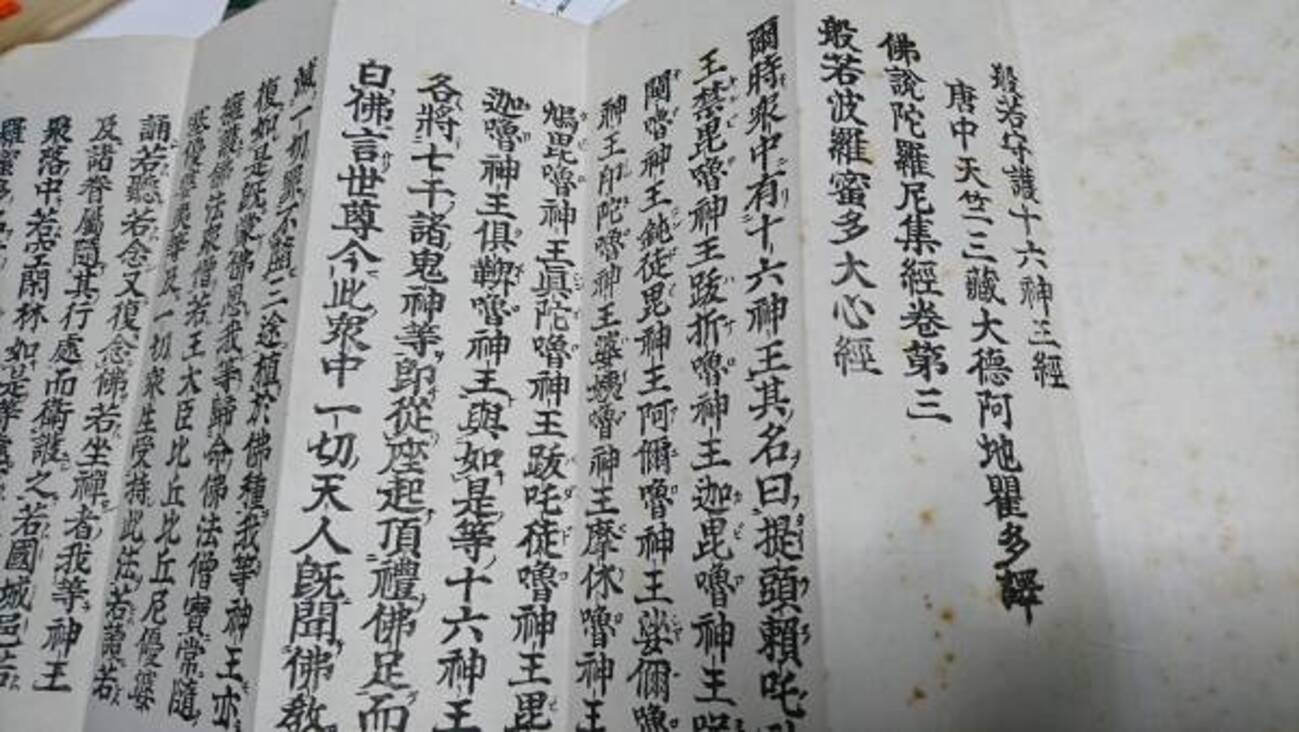 般若守護十六神王經
唐中天竺三藏大德阿地瞿多譯
佛說陀羅尼集經卷第三
般若波羅蜜多大心經
爾時衆中有十六神王其名曰提頭賴吒
王禁毘嚕神王跋折嚕神王迦毘嚕神王
嚕神王鈍徒毘神王阿儞嚕神王娑儞嚕
神王印陀嚕神王婆姨嚕神王摩休嚕神王
鳩毘嚕神王眞陀嚕神王跋吒徒嚕神王毘
迦嚕神王俱鞞嚕神王與如是等十六神王
各將七千諸鬼神等卽從座起頂禮佛足而
白佛言世尊今此衆中一切天人旣聞佛教
滅一切罪不墮三途植於佛種我等神王亦
復如是旣蒙佛恩我等歸命佛法僧寶常隨
擁護佛法衆僧若王大臣比丘比丘尼優婆
塞優婆夷等及一切衆生受持此法若讀若
誦若聽若念又復念佛若坐禪者我等神王
及諸眷屬隨其行處而衞護之若國城邑若
聚落中若空閑林如是等處
羅蜜多